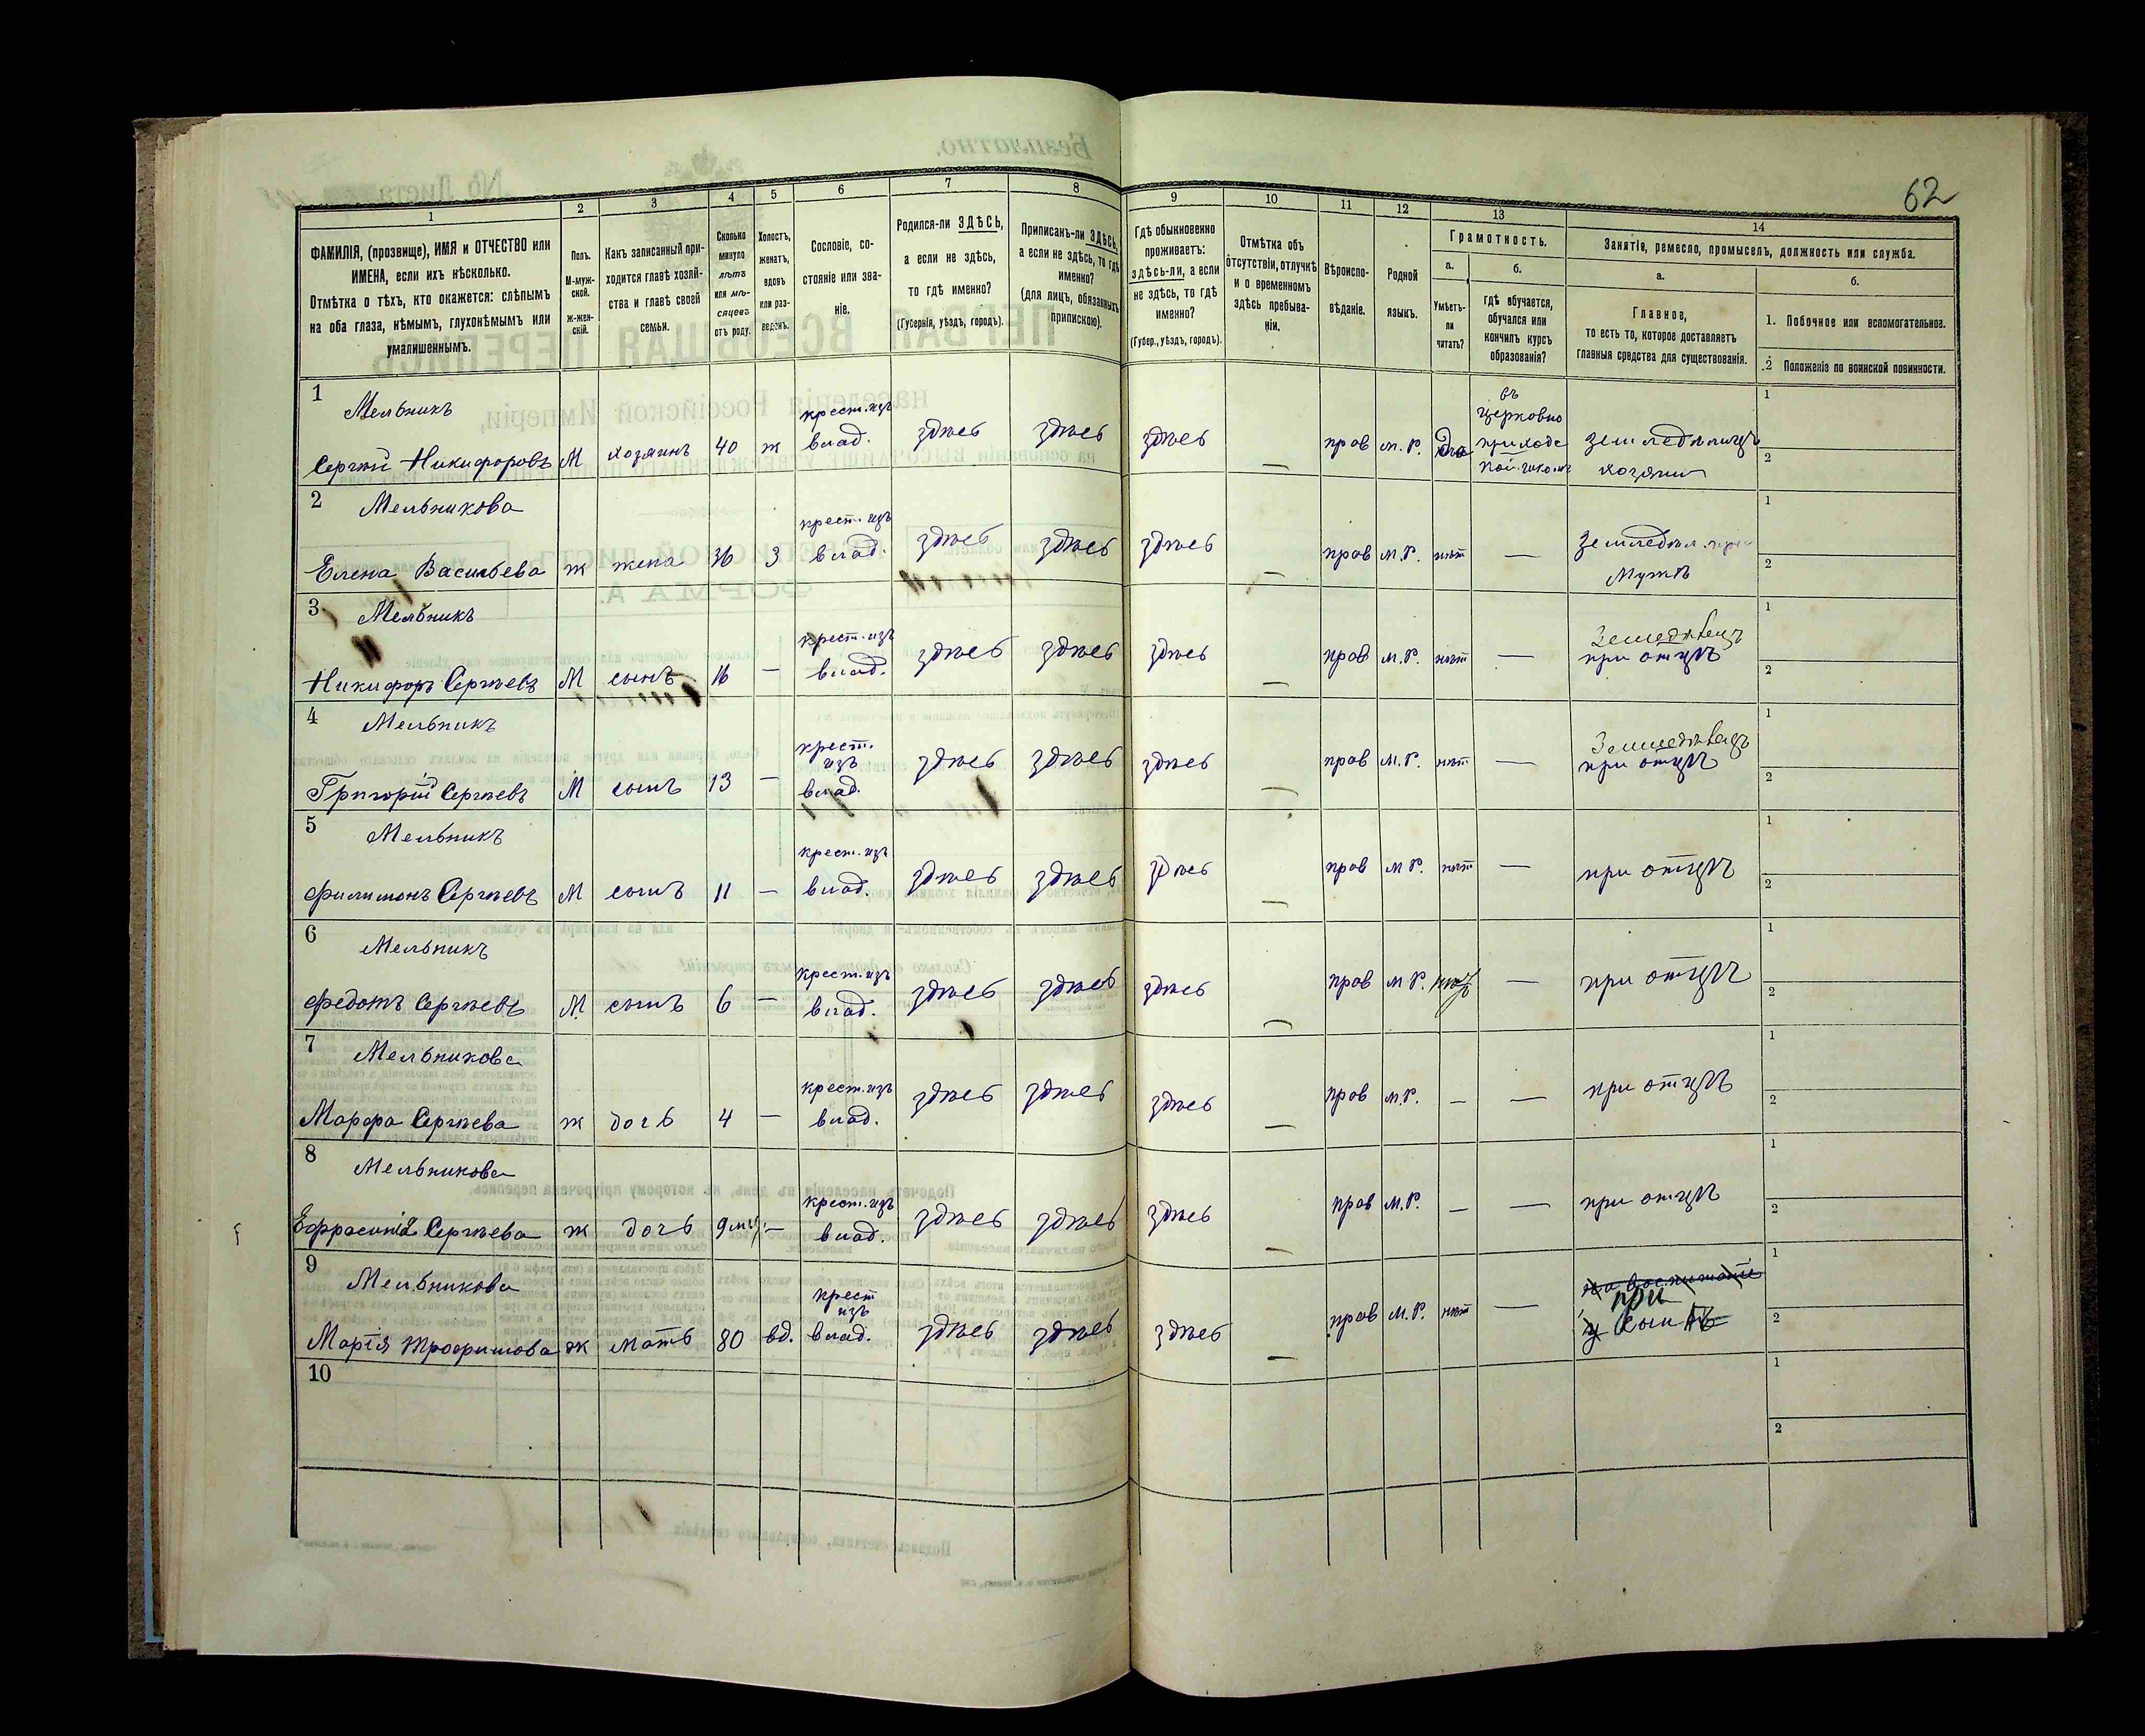 62
1
2
3
4
5
6
7
8
9
10
11
12
13
14
ФАМИЛІЯ, (прозвище), ИМЯ и ОТЧЕСТВО или
ИМЕНА, если ихъ нѣсколько.
Отмѣтка о тѣхъ, кто окажется: слѣпымъ
на оба глаза, нѣмымъ, глухонѣмымъ или
умалишеннымъ.
Полъ.
М-муж-
ской.
Ж-жен-
скій.
Какъ записанный при-
ходится главѣ хозяй-
ства и главѣ своей
семьи.
Сколько
минуло
лѣтъ
или мѣ-
сяцевъ
отъ роду.
Холостъ,
женатъ,
вдовъ
или раз-
веденъ.
Сословіе, со-
стояніе или зва-
ніе.
Родился-ли ЗДѢСЬ,
а если не здѣсь,
то гдѣ именно?
(Губернія, уѣздъ, городъ).
Приписанъ-ли ЗДѢСЬ,
а если не здѣсь, то гдѣ
именно?
(для лицъ, обязанныхъ
припискою).
Гдѣ обыкновенно
проживаетъ:
здѣсь-ли, а если
не здѣсь, то гдѣ
именно?
(Губер., уѣздъ, городъ).
Отмѣтка объ
отсутствіи, отлучкѣ
и о временномъ
здѣсь пребыва-
ніи.
Вѣроиспо-
вѣданіе.
Родной
языкъ.
Грамотность.
а.
Умѣетъ-
ли
читать?
б.
гдѣ обучается,
обучался или
кончилъ курсъ
образованія?
Занятія, ремесло, промыселъ, должность или служба.
а.
Главное,
то есть то, которое доставляетъ
главныя средства для существованія.
б.
1. Побочное или вспомогательное.
2 Положеніе по воинской повинности.
1
Мельникъ
Сергѣй Никифоровъ М хозяинъ 40 ж крест. изъ влад. здѣсь здѣсь здѣсь — прав м.р. да
въ
церковно
приходс
кой школѣ
земледѣлецъ
хозяинъ
1
2
2
Мельникова
Елена Васильева ж жена 36 З крест. изъ влад. здѣсь здѣсь здѣсь — прав м.р. нѣт —
земледѣл. при
мужѣ
1
2
3
Мельникъ
Никифоръ Сергѣевъ М сынъ 16 — крест. изъ влад. здѣсь здѣсь здѣсь — прав м.р. нѣт —
Земледѣлецъ
при отцѣ
1
2
4
Мельникъ
Григорій Сергѣевъ М сынъ 13 — крест. изъ влад. здѣсь здѣсь здѣсь — прав м.р. нѣт —
Земледѣлецъ
при отцѣ
1
2
5
Мельникъ
Филимонъ Сергѣевъ М сынъ 11 — крест. изъ влад. здѣсь здѣсь здѣсь — прав м р. нѣт — при отцѣ
1
2
6
Мельникъ
Федотъ Сергѣевъ М. сынъ 6 — крест. изъ влад. здѣсь здѣсь здѣсь — прав м р. нѣтъ — при отцѣ
1
2
7
Мельникова
Марфа Сергѣева ж дочь 4 — крест. изъ влад. здѣсь здѣсь здѣсь — прав м.р. — — при отцѣ
1
2
8
Мельникова
Ефросинія Сергѣева ж дочь 9 мц. — крест. изъ влад. здѣсь здѣсь здѣсь — прав м.р. — — при отцѣ
1
2
9
Мельникова
Марія Трофимова ж мать 80 вд. крест изъ влад. здѣсь здѣсь здѣсь — прав м.р. нѣт —
при
сынѣ
1
2
10
1
2